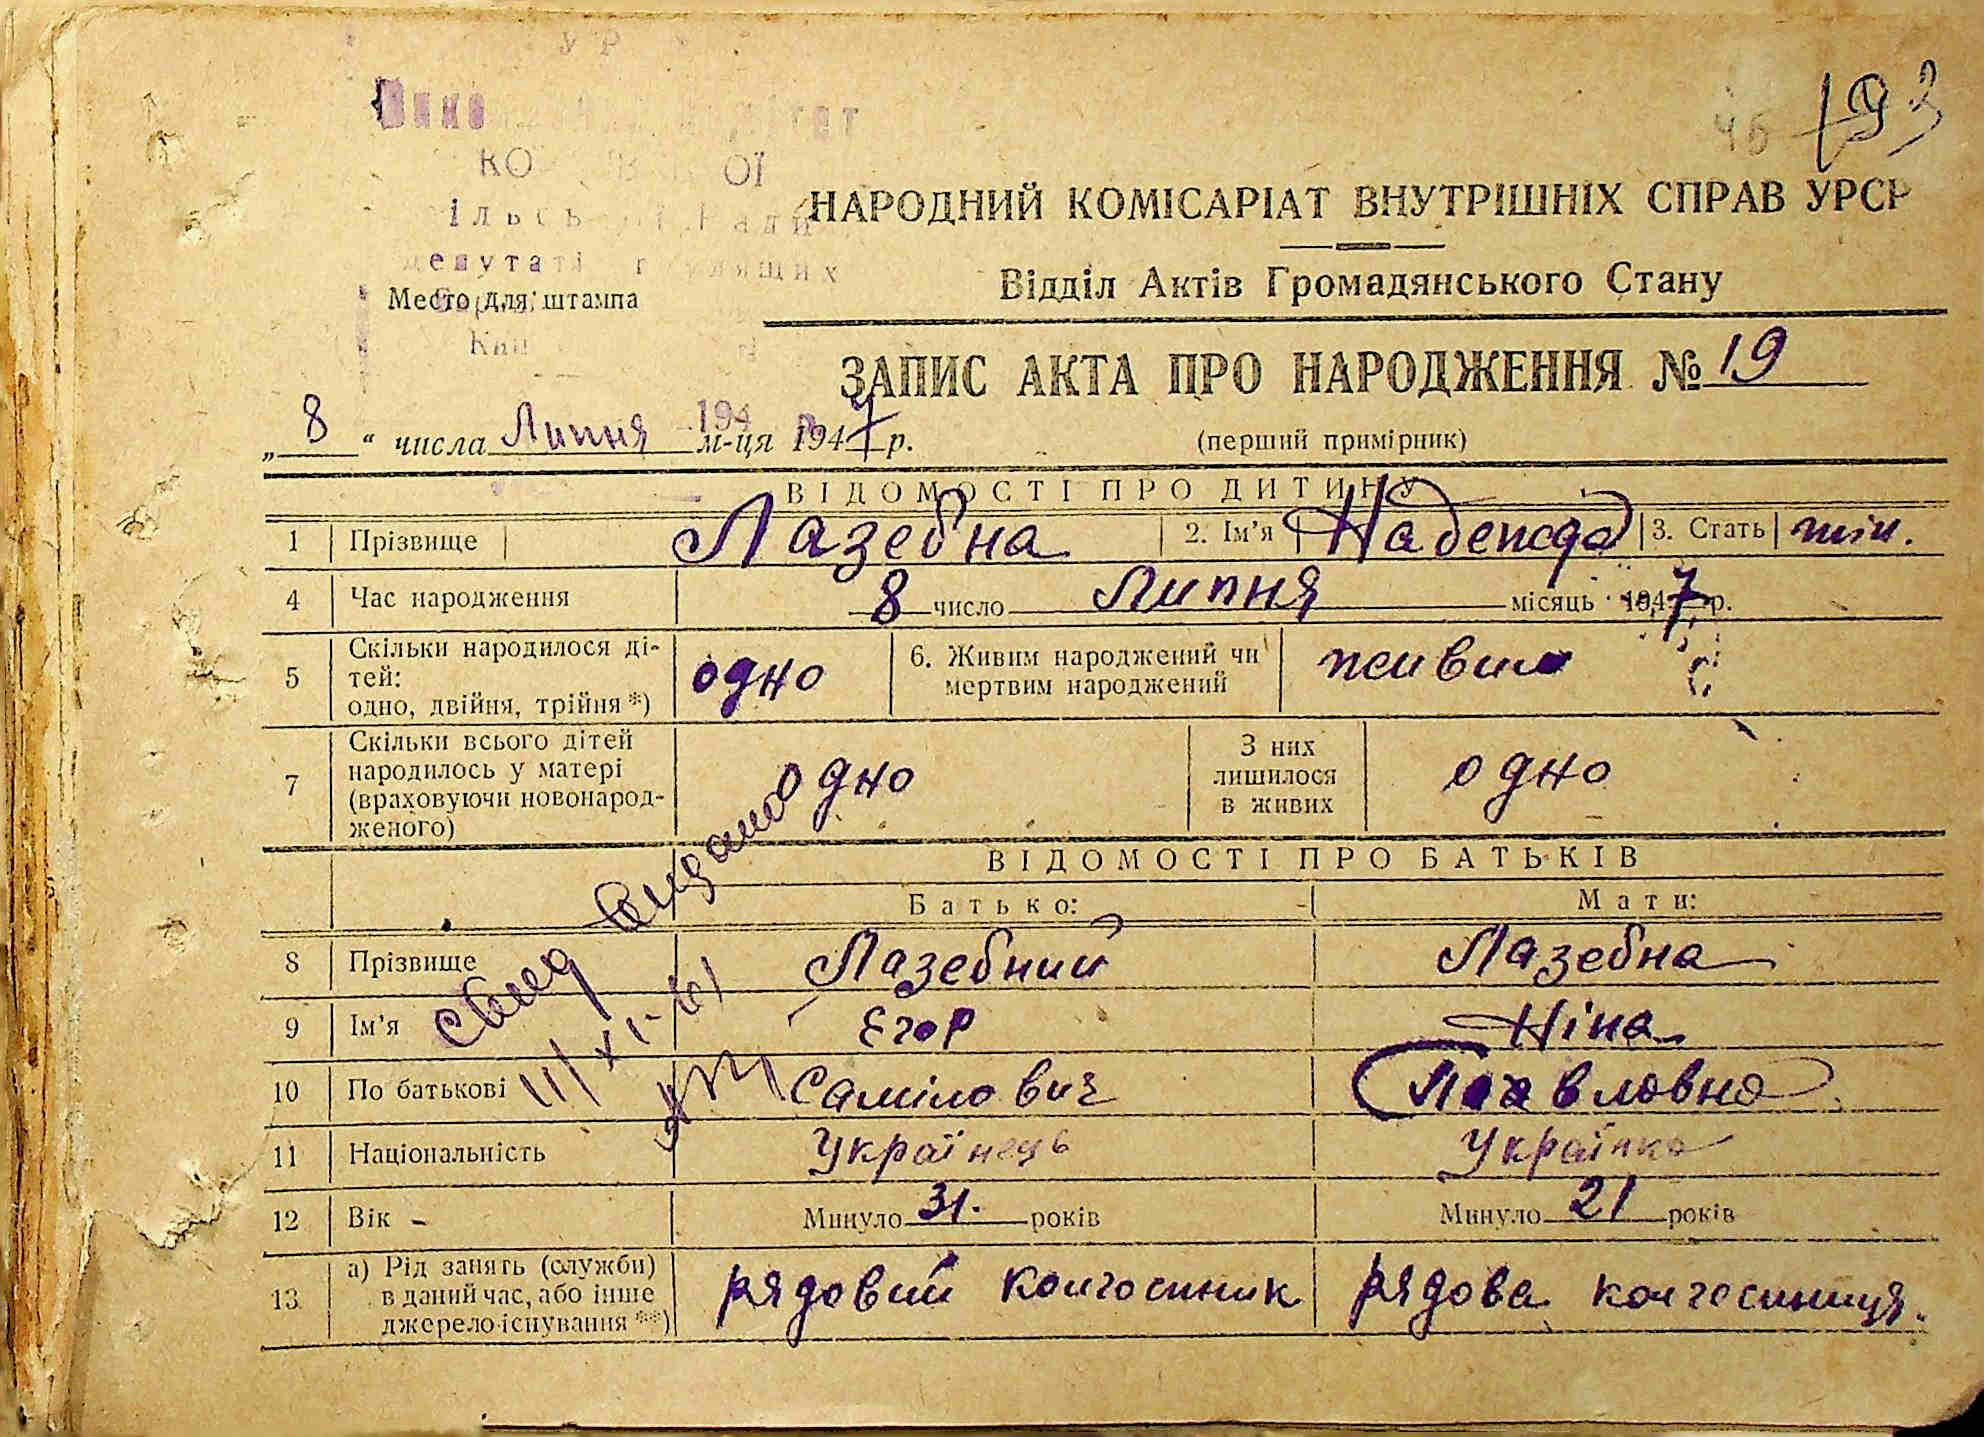 193
46
НАРОДНИЙ КОМІСАРІАТ ВНУТРІШНІХ СПРАВ УРСР
Відділ Актів Громадянського Стану
Место для штампа
ЗАПИС АКТА ПРО НАРОДЖЕННЯ № 19
„ 8 “ числа Липня м-ця 1947 р.
(перший примірник)
ВІДОМОСТІ ПРО ДИТИНУ
1 Прізвище Лазебна 2. Ім’я Надежда 3. Стать жін.
4 Час народження 8 число Липня місяць 1947 р.
5 Скільки народилося ді-
тей:
одно, двійня, трійня *) одно 6. Живим народжений чи
мертвим народжений живим
7 Скільки всього дітей
народилось у матері
(враховуючи новонарод-
женого) одно З них
лишилося
в живих одно
ВІДОМОСТІ ПРО БАТЬКІВ
Батько: Мати:
8 Прізвище Лазебний Лазебна
9 Ім’я Єгор Ніна
10 По батькові Самілович Павловна
11 Національність Українець Українка
12 Вік Минуло 31. років Минуло 21 років
13 а) Рід занять (служби)
в даний час, або інше
джерело існування **) рядовий колгоспник рядова колгоспниця.
свид видано
11/XI-61